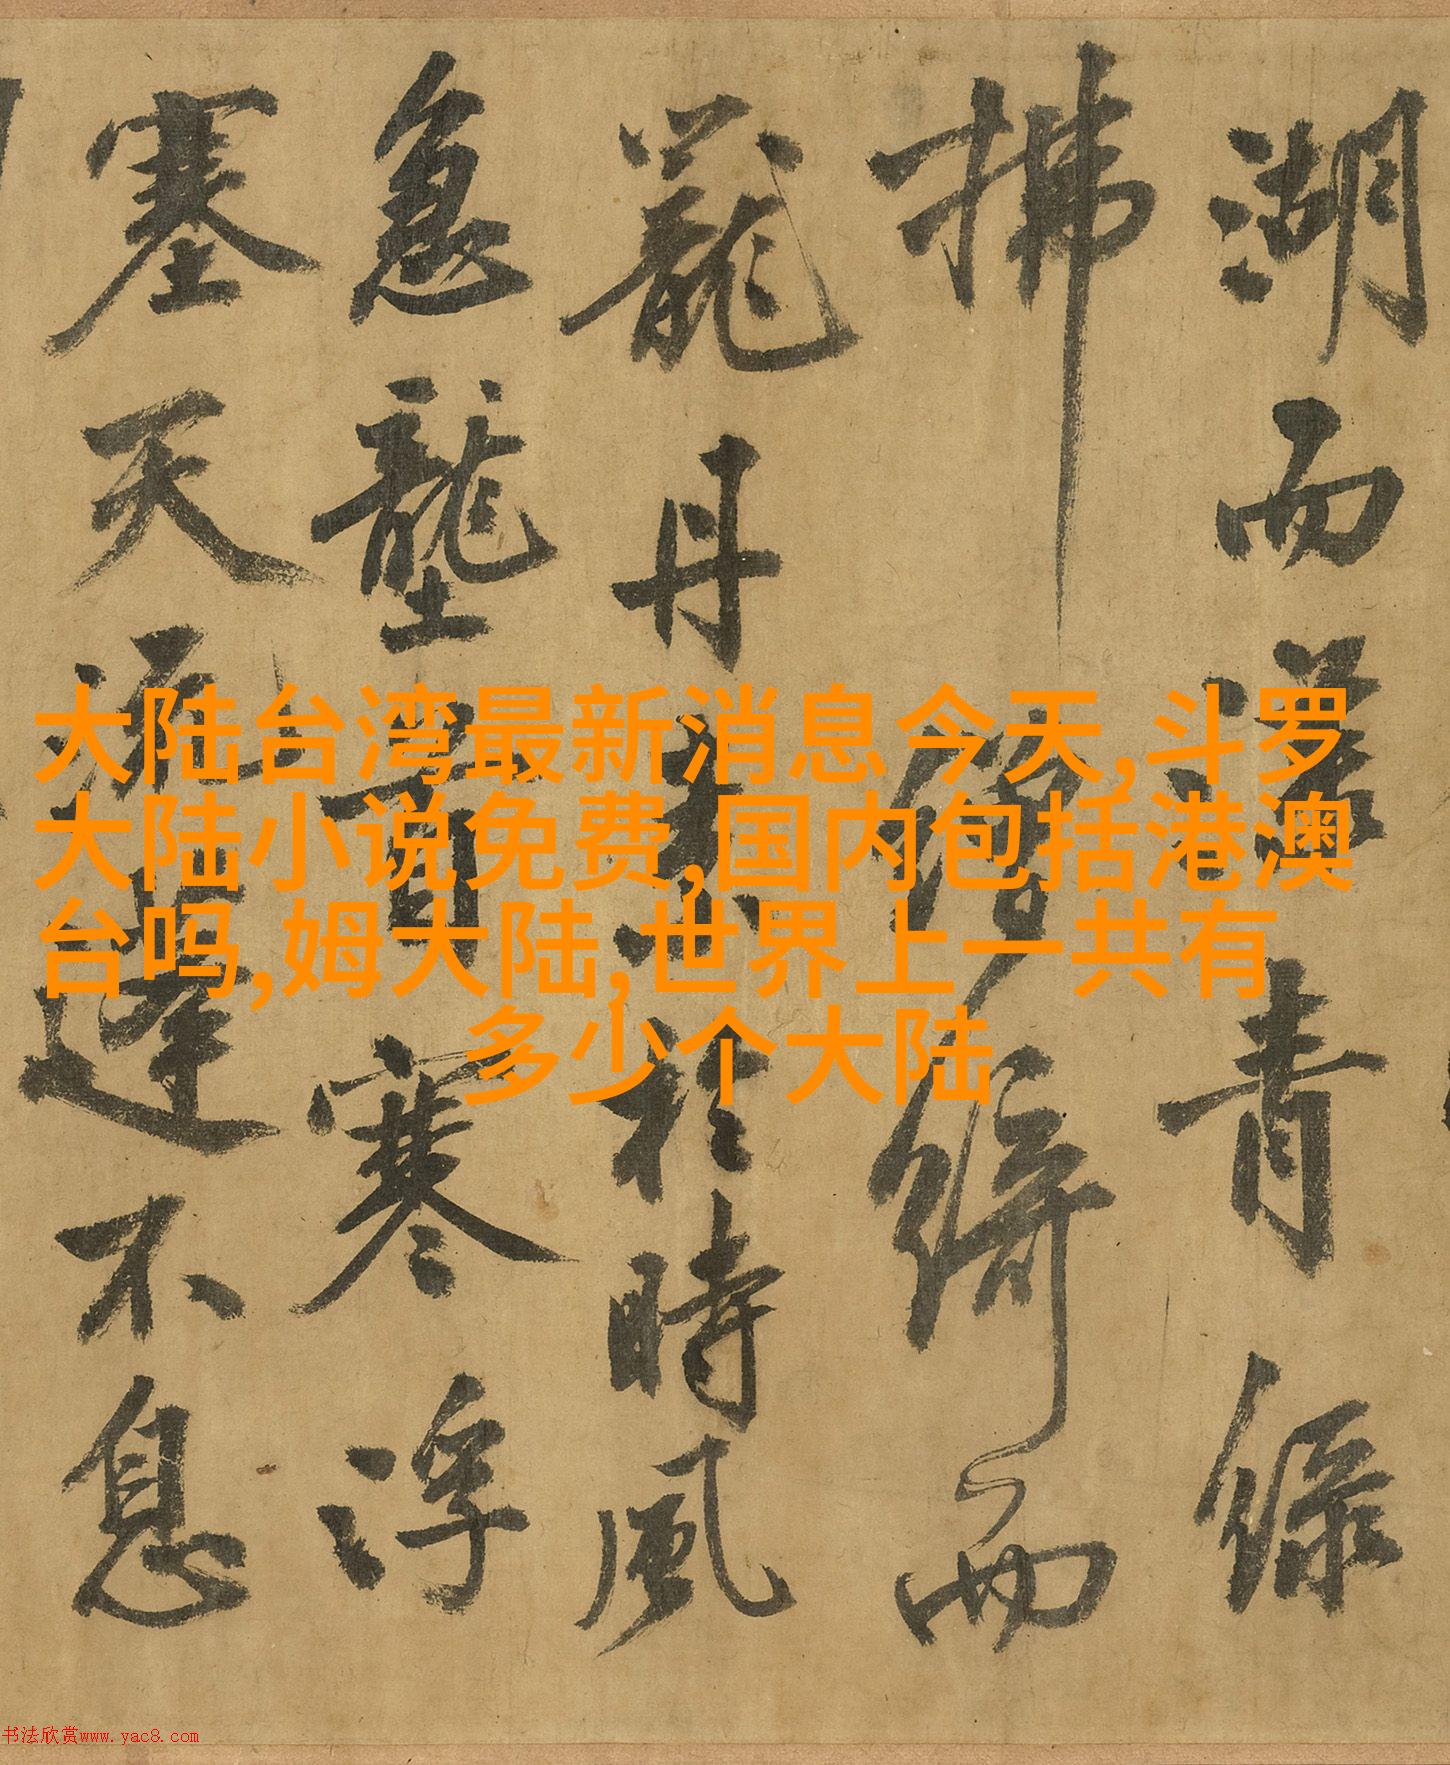 大陆台湾最新消息今天,斗罗
大陆小说免费,国内包括港澳
台吗,姆大陆,世界上一共有
多少个大陆
湖而漾青綠
拂繒綺而
蘢丹素於時風
急壟首寒浮
塞天流不息
书法欣赏www.yac8.com